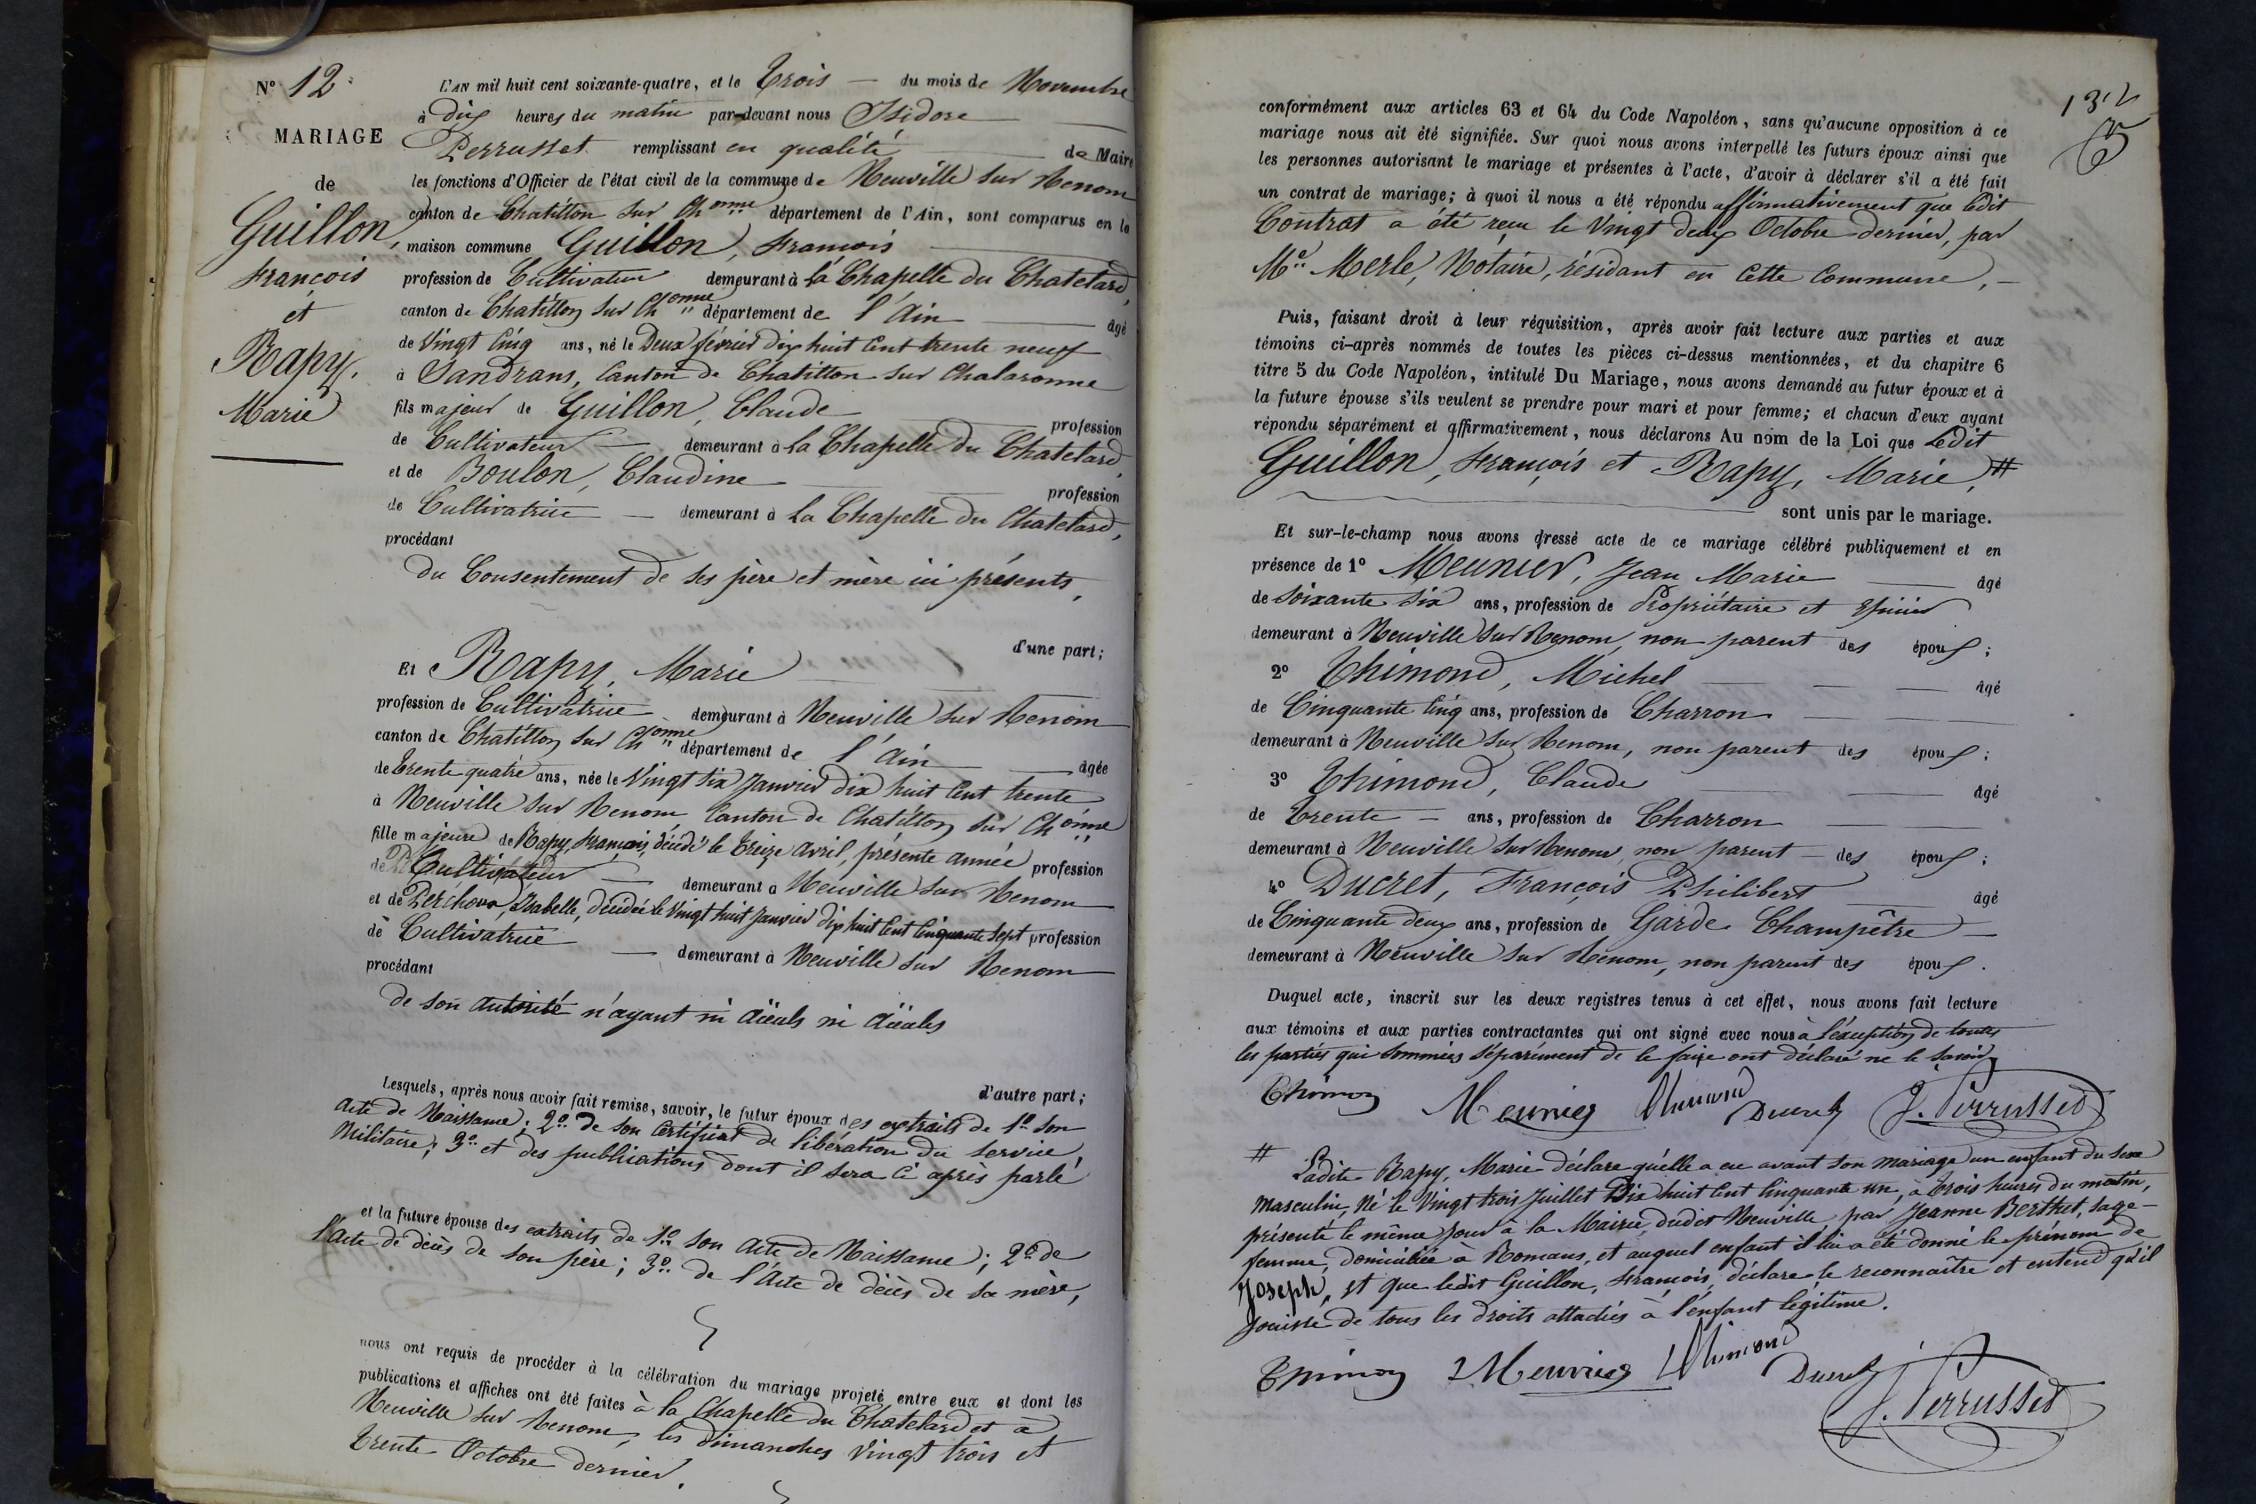 N° 12
MARIAGE
de
Guillon,
François
et
Rapy,
Marie
L'AN mil huit cent soixante-quatre, et le Trois — du mois de Novembre
à dix heures du matin par-devant nous Isidore
Perrusset remplissant en qualité de Maire
les fonctions d'Officier de l'état civil de la commune de Neuville sur Renom
canton de Chatillon sur Chonne département de l'Ain, sont comparus en la
maison commune Guillon, François
profession de Cultivateur demeurant à la Chapelle du Chatelard,
canton de Chatillon sur Chonne département de l'Ain âgé
de Vingt Cinq ans, né le Deux février dix huit Cent trente neuf
à Sandrans, Canton de Chatillon sur Chalaronne
fils majeur de Guillon, Claude profession
de Cultivateur demeurant à La Chapelle du Chatelard,
et de Boulon, Claudine profession
de Cultivatrice — demeurant à La Chapelle du Chatelard,
procédant
du Consentement de ses père et mère ici présents,
d'une part;
Et Rapy, Marie
profession de Cultivatrice demeurant à Neuville sur Renom
canton de Chatillon sur Chonne département de l'Ain âgée
de Trente quatre ans, née le Vingt six Janvier dix huit Cent trente
à Neuville sur Renom Canton de Chatillon sur Chonne
fille majeure de Rapy, François, décédé le Treize avril, présente année profession
de Cultivateur — demeurant à Neuville sur Renom
et de Isabelle, décédée le Vingt huit Janvier dix huit Cent Cinquante Sept profession
de Cultivatrice — demeurant à Neuville sur Renom
procédant
de son autorité n'ayant ni aïeuls ni aïeules
d'autre part;
Lesquels, après nous avoir fait remise, savoir, le futur époux des extraits de 1° son
acte de Naissance; 2° de son Certificat de libération du service,
Militaire; 3° et des publications dont il sera ci après parlé
et la future épouse des extraits de 1° son acte de Naissance; 2° de
l'acte de décès de son père; 3° de l'Acte de décès de sa mère,
nous ont requis de procéder à la célébration du mariage projeté entre eux et dont les
publications et affiches ont été faites à la Chapelle du Chatelard et à
Neuville sur Renom, les dimanches vingt trois et
trente Octobre dernier.
132
conformément aux articles 63 et 64 du Code Napoléon, sans qu'aucune opposition à ce
mariage nous ait été signifiée. Sur quoi nous avons interpellé les futurs époux ainsi que
les personnes autorisant le mariage et présentes à l'acte, d'avoir à déclarer s'il a été fait
un contrat de mariage; à quoi il nous a été répondu affirmativement que ledit
Contrat a été reçu le Vingt deux Octobre dernier, par
Me Merle, Notaire, résidant en cette Commune, —
Puis, faisant droit à leur réquisition, après avoir fait lecture aux parties et aux
témoins ci-après nommés de toutes les pièces ci-dessus mentionnées, et du chapitre 6
titre 5 du Code Napoléon, intitulé Du Mariage, nous avons demandé au futur époux et à
la future épouse s'ils veulent se prendre pour mari et pour femme; et chacun d'eux ayant
répondu séparément et affirmativement, nous déclarons Au nom de la Loi que Ledit
Guillon, François et Rapy, Marie, #
sont unis par le mariage.
Et sur-le-champ nous avons dressé acte de ce mariage célébré publiquement et en
présence de 1° Meunier, Jean Marie âgé
de soixante six ans, profession de Propriétaire et Epicier
demeurant à Neuville sur Renom, non parent des époux;
2° Thimond, Michel âgé
de Cinquante Cinq ans, profession de Charron
demeurant à Neuville sur Renom, non parent des époux;
3° Thimond, Claude âgé
de Trente — ans, profession de Charron
demeurant à Neuville sur Renom, non parent — des époux;
4° Ducret, François Philibert âgé
de Cinquante deux ans, profession de Garde Champêtre —
demeurant à Neuville sur Renom, non parent des époux.
Duquel acte, inscrit sur les deux registres tenus à cet effet, nous avons fait lecture
aux témoins et aux parties contractantes qui ont signé avec nous à l'exception de toutes
les parties qui sommées séparément de le faire ont déclaré ne le savoir
Thimon Meunier Thimond Ducret J. Perrusset
# Ladite Rapy, Marie déclare qu'elle a eu avant son mariage un enfant du sexe
masculin, Né le Vingt trois Juillet Dix huit Cent Cinquante un, à trois heures du matin,
présenté le même jour à la Mairie dudit Neuville par Jeanne Berthet, sage-
femme, domiciliée à Romans, et auquel enfant il lui a été donné le prénom de
Joseph, et que ledit Guillon, François, déclare le reconnaître et entend qu'il
jouisse de tous les droits attachés à l'enfant légitime.
Thimon Meunier Thimond Ducret J. Perrusset